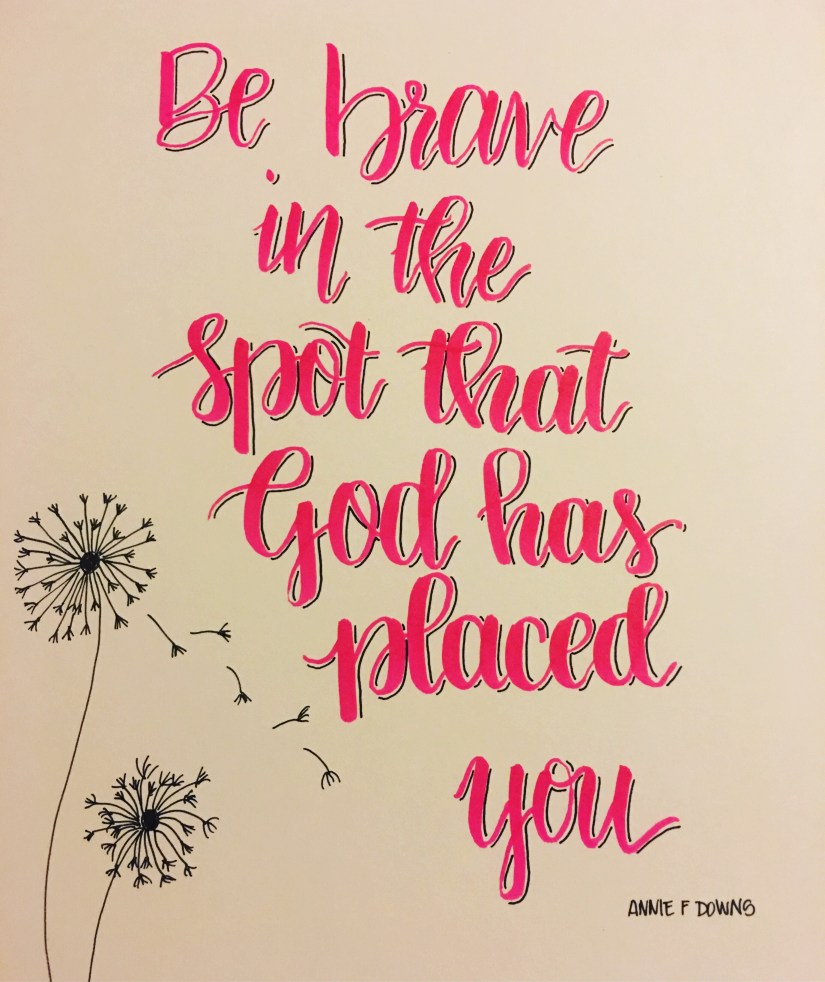 Be brave
in the
spot that
God has
placed
you
ANNIE F DOWNS